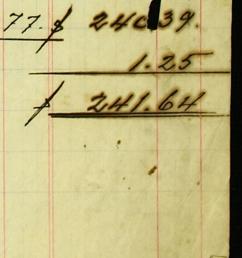 77. $ 240.39.
1.25
$ 241.64